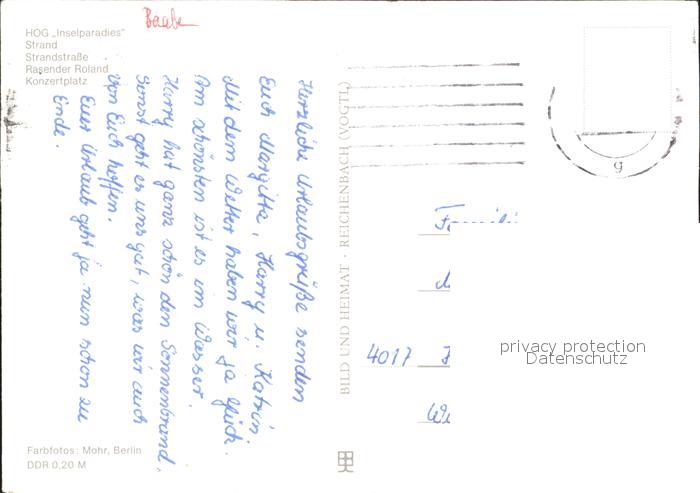 Baabe
HOG „Inselparadies"
Strand
Strandstraße
Rasender Roland
Konzertplatz
Herzliche Urlaubsgrüße senden
Euch Margitta, Harry u. Katrin.
Mit dem Wetter haben wir ja Glück.
Am schönsten ist es im Wasser.
Harry hat ganz schön den Sonnenbrand,
sonst geht es uns gut, was wir auch
von Euch hoffen.
Euer Urlaub geht ja nun schon zu
Ende.
Farbfotos: Mohr, Berlin
DDR 0,20 M
BILD UND HEIMAT · REICHENBACH (VOGTL)
g
4017
privacy protection
Datenschutz